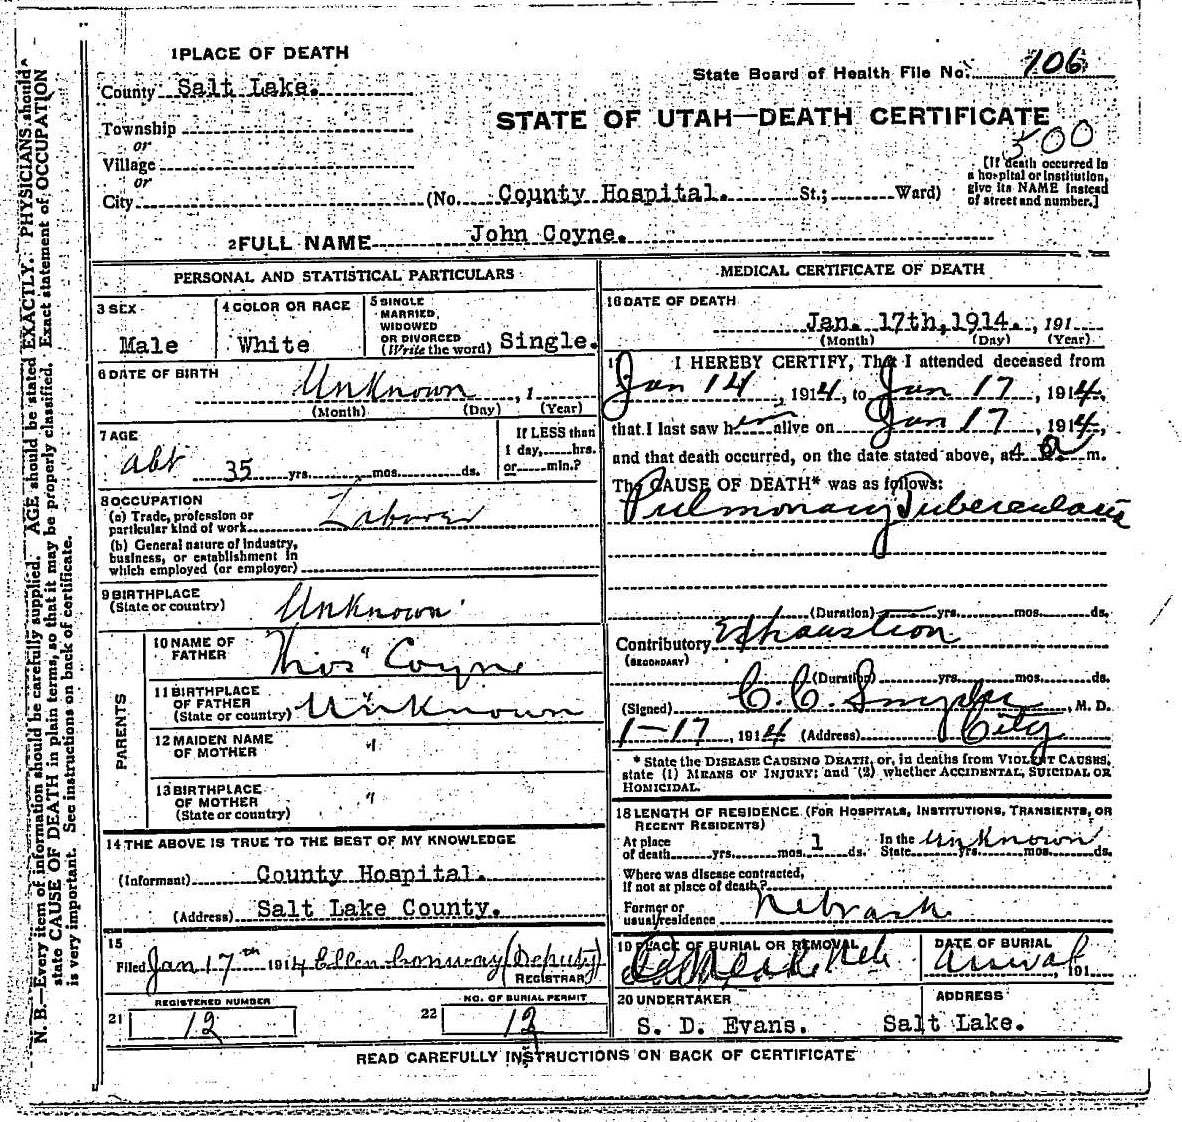 1 PLACE OF DEATH
State Board of Health File No. 106
County Salt Lake.
STATE OF UTAH—DEATH CERTIFICATE
500
Township
or
Village
or
City (No. County Hospital. St.; Ward)
[If death occurred in
a hospital or institution,
give its NAME instead
of street and number.]
2 FULL NAME John Coyne.
PERSONAL AND STATISTICAL PARTICULARS
3 SEX
Male
4 COLOR OR RACE
White
5 SINGLE
MARRIED,
WIDOWED
OR DIVORCED
(Write the word) Single.
6 DATE OF BIRTH
Unknown , 1
(Month) (Day) (Year)
7 AGE
abt 35 yrs. mos. ds.
If LESS than
1 day, hrs.
or min.?
8 OCCUPATION
(a) Trade, profession or
particular kind of work Laborer
(b) General nature of Industry,
business, or establishment in
which employed (or employer)
9 BIRTHPLACE
(State or country) Unknown
PARENTS
10 NAME OF
FATHER Thos Coyne
11 BIRTHPLACE
OF FATHER
(State or country) Unknown
12 MAIDEN NAME
OF MOTHER "
13 BIRTHPLACE
OF MOTHER "
(State or country)
14 THE ABOVE IS TRUE TO THE BEST OF MY KNOWLEDGE
(Informant) County Hospital.
(Address) Salt Lake County.
15
Filed Jan 17th 1914 Ellen Conway (Deputy)
REGISTRAR
REGISTERED NUMBER
21 12
NO. OF BURIAL PERMIT
22 12
MEDICAL CERTIFICATE OF DEATH
16 DATE OF DEATH
Jan. 17th, 1914. , 191
(Month) (Day) (Year)
17 I HEREBY CERTIFY, That I attended deceased from
Jan 14 , 1914, to Jan 17 , 1914,
that I last saw him alive on Jan 17 , 1914,
and that death occurred, on the date stated above, at 4 a m.
The CAUSE OF DEATH* was as follows:
Pulmonary Tuberculosis
(Duration) yrs. mos. ds.
Contributory Exhaustion
(SECONDARY)
(Duration) yrs. mos. ds.
(Signed) C. C. Snyder , M. D.
1-17 , 1914 (Address) City
* State the DISEASE CAUSING DEATH, or, in deaths from VIOLENT CAUSES,
state (1) MEANS OF INJURY; and (2) whether ACCIDENTAL, SUICIDAL OR
HOMICIDAL.
18 LENGTH OF RESIDENCE (FOR HOSPITALS, INSTITUTIONS, TRANSIENTS, OR
RECENT RESIDENTS)
At place
of death yrs. mos. 1 ds.
In the
State Unknown yrs. mos. ds.
Where was disease contracted,
If not at place of death?
Former or
usual residence Nebrask
19 PLACE OF BURIAL OR REMOVAL
Neb
DATE OF BURIAL
Arrival , 191
20 UNDERTAKER
S. D. Evans.
ADDRESS
Salt Lake.
READ CAREFULLY INSTRUCTIONS ON BACK OF CERTIFICATE
N. B.—Every item of information should be carefully supplied. AGE should be stated EXACTLY. PHYSICIANS should
state CAUSE OF DEATH in plain terms, so that it may be properly classified. Exact statement of OCCUPATION
is very important. See instructions on back of certificate.